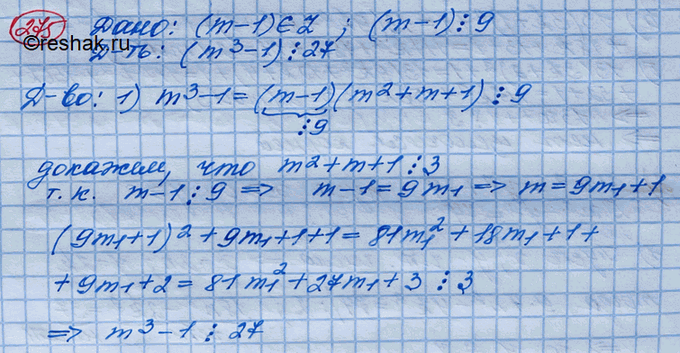 275 Дано: (m-1)∈Z ; (m-1)⋮9
©reshak.ru
Д-ть: (m³-1)⋮27
Д-во: 1) m³-1=(m-1)(m²+m+1)⋮9
⋮9
докажем, что m²+m+1⋮3
т.к. m-1⋮9 => m-1=9m₁ => m=9m₁+1
(9m₁+1)²+9m₁+1+1=81m₁²+18m₁+1+
+9m₁+2=81m₁²+27m₁+3⋮3
=> m³-1⋮27